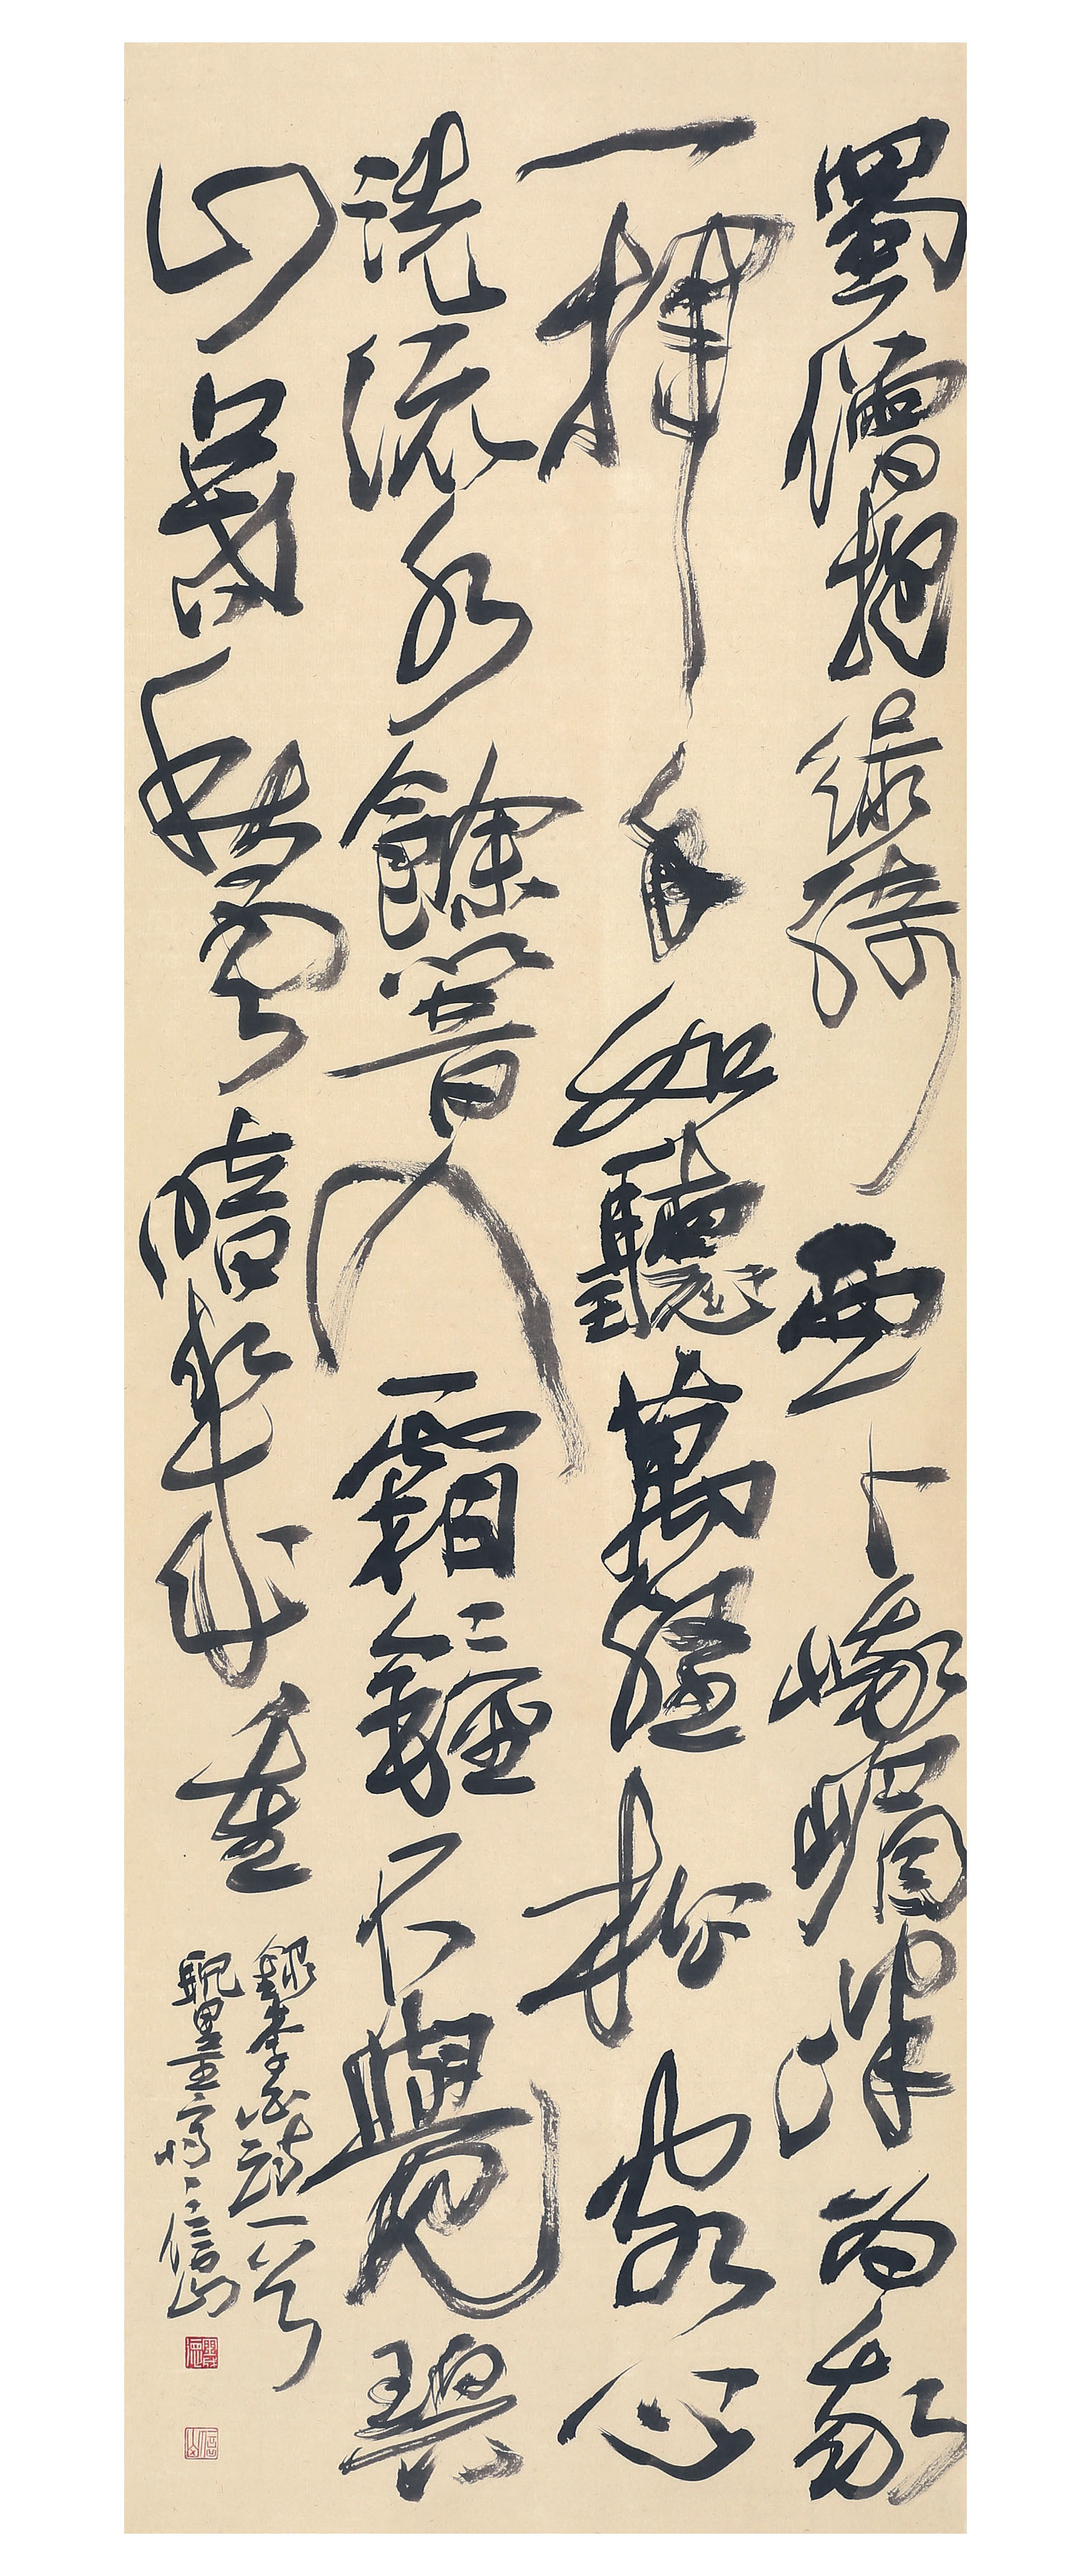 蜀僧抱綠綺西下峨嵋峰為我
一揮手如聽萬壑松客心
洗流水餘響入霜鐘不覺碧
山暮秋雲暗幾重
錄李白詩一首
信山